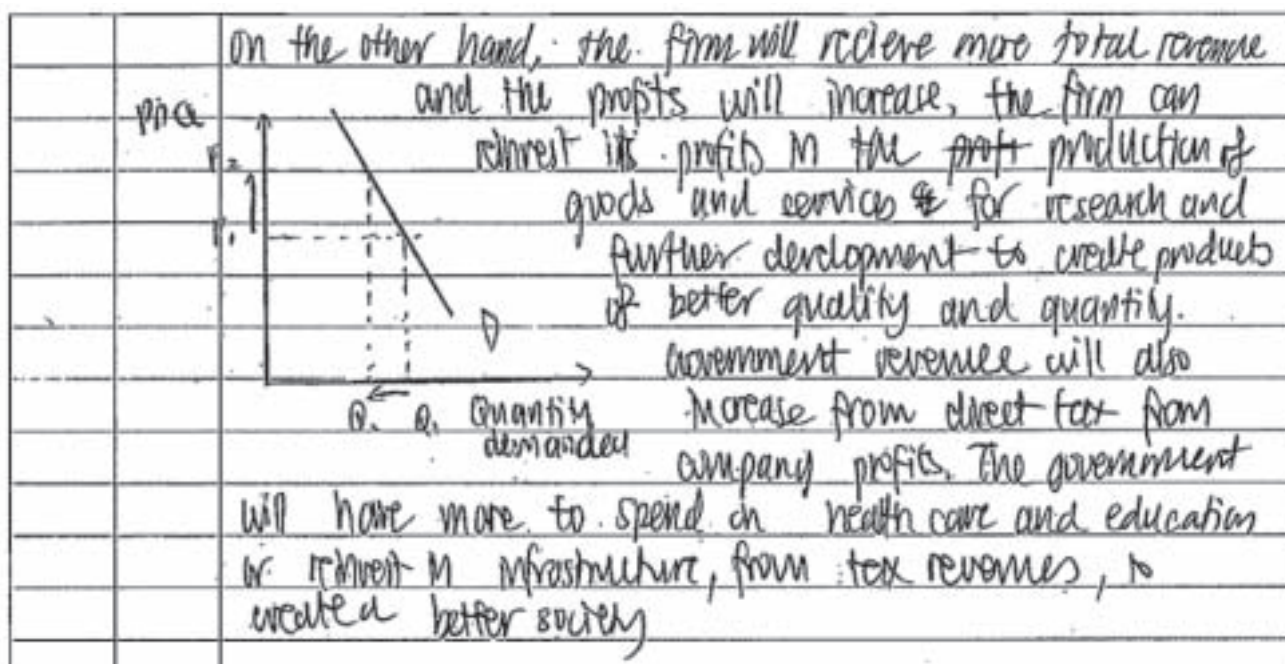 on the other hand, the firm will recieve more total revenue
and the profits will increase, the firm can
Price
reinvest its profits in the production of
P₂
goods and services for research and
P₁
further development to create products
of better quality and quantity.
D
government revenue will also
Q₂ Q₁ Quantity
demanded
increase from direct tax from
company profits. The government
will have more to spend on health care and education
or reinvest in infrastructure, from tax revenues, to
created better society